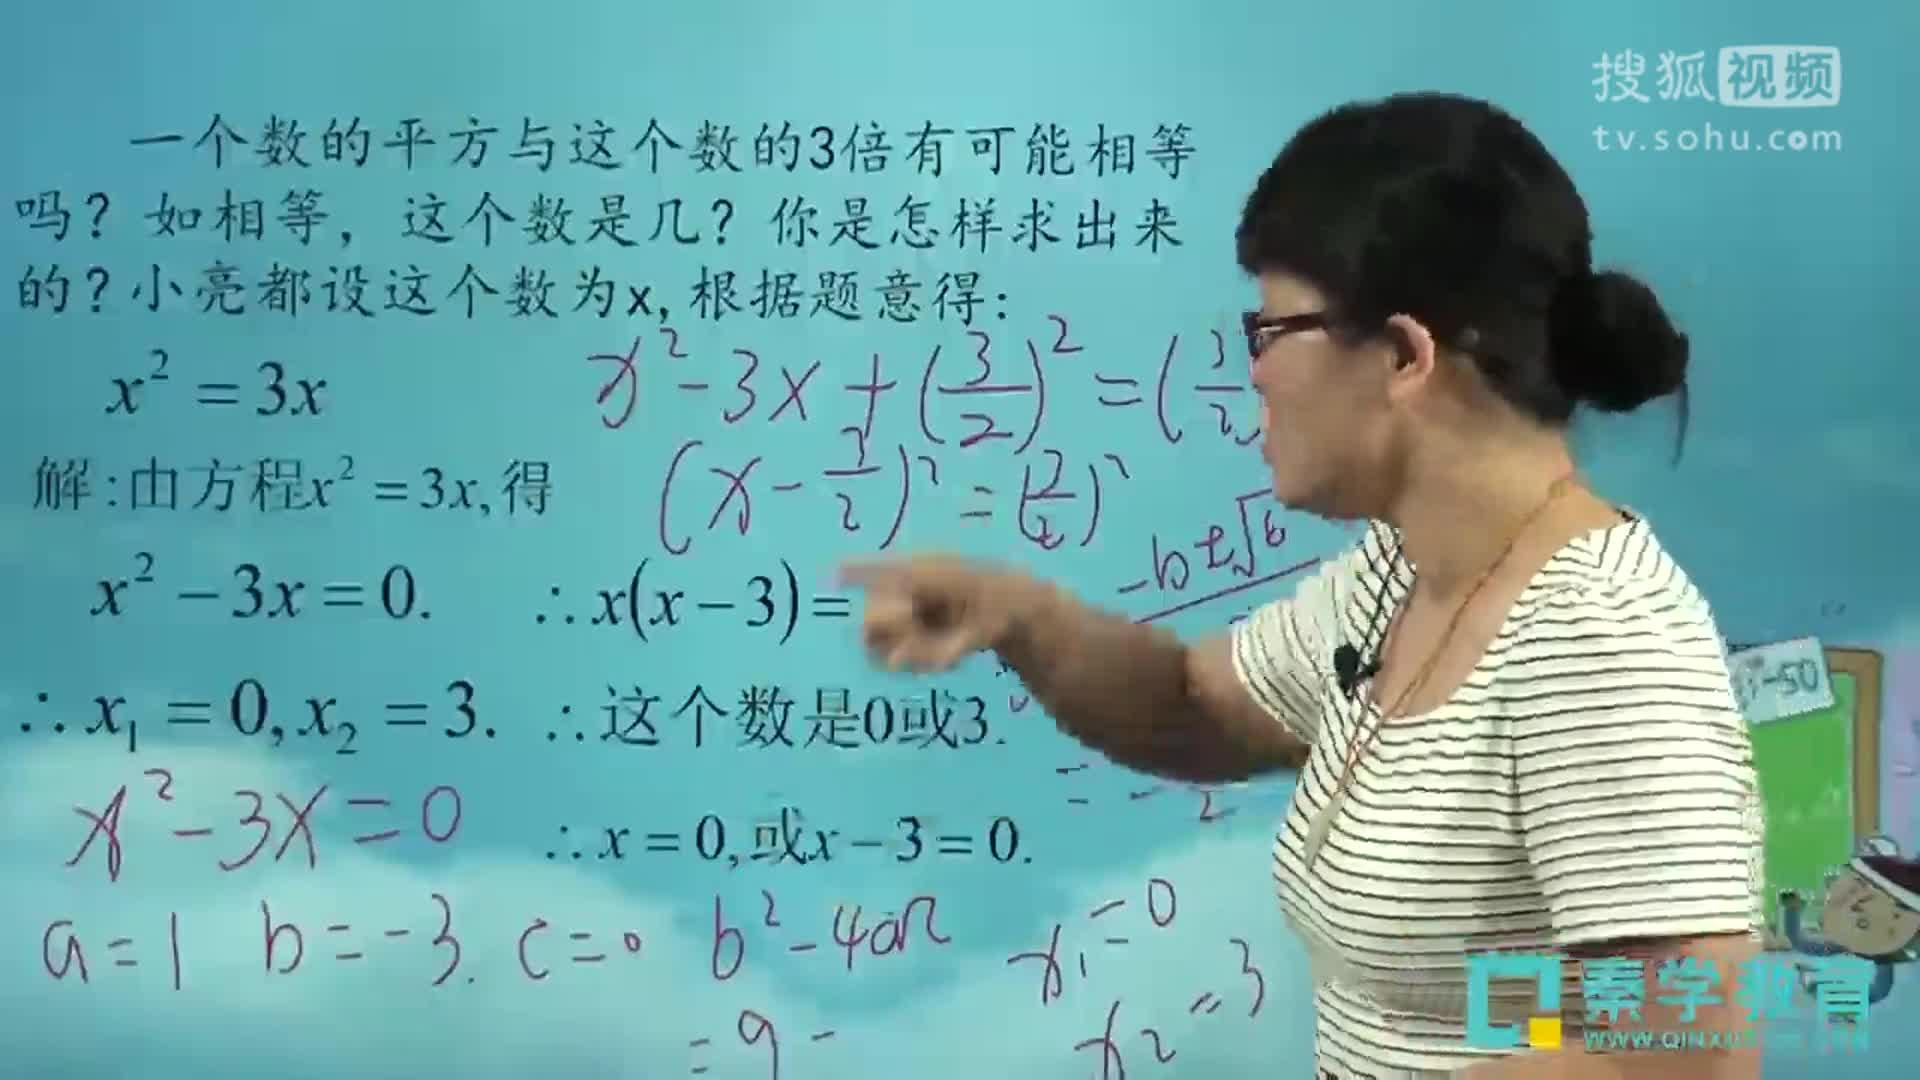 搜狐视频
tv.sohu.com
一个数的平方与这个数的3倍有可能相等
吗？如相等，这个数是几？你是怎样求出来
的？小亮都设这个数为x,根据题意得：
x² = 3x
x² - 3x + (3/2)² = (3/2)
解:由方程x² = 3x,得
(x - 3/2)² = (3/2)²
-b±√b
x² - 3x = 0.
∴ x(x - 3) =
∴ x₁ = 0, x₂ = 3.
∴ 这个数是0或3.
x² - 3x = 0
∴ x = 0,或x - 3 = 0.
a = 1 b = -3. c = 0 b² - 4ac
x₁ = 0
= 9 -
x₂ = 3
秦学教育